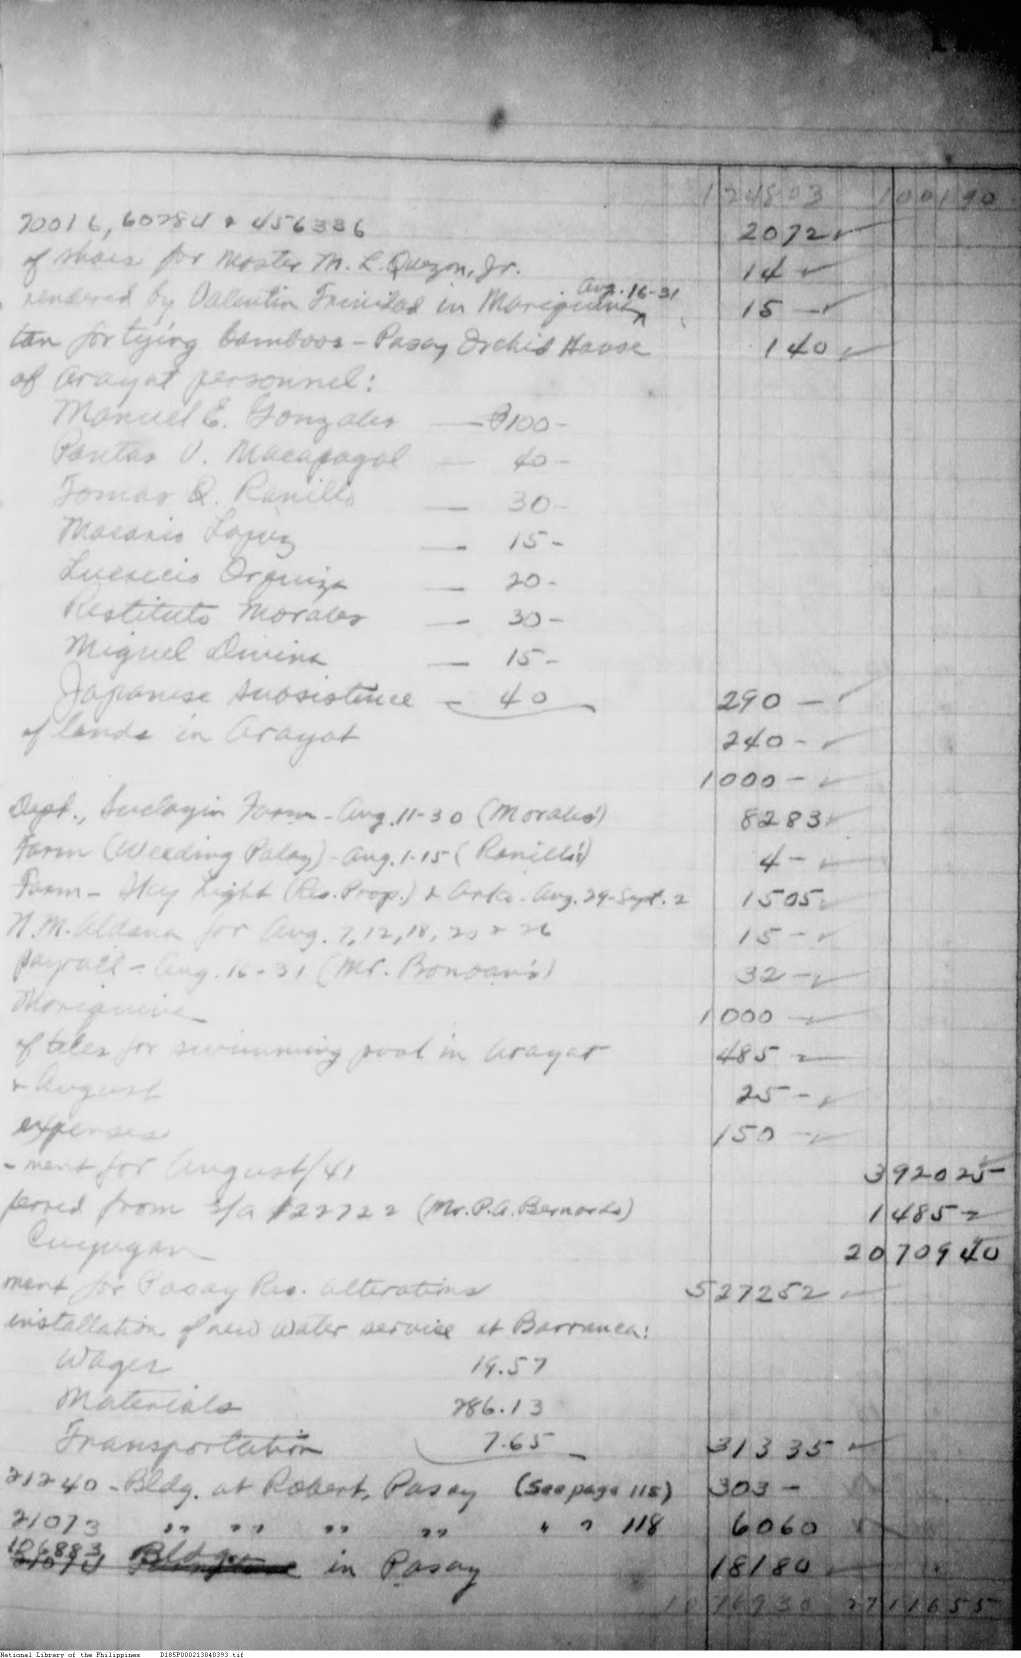 124803 100190
70016, 60784 & 456336 2072
of shoes for Master M. L. Quezon, Jr. 14 -
Aug. 16-31
rendered by Valentin Trinidad in Mariquina 15 -
tan for tying bamboos - Pasay Orchid House 1 40
of Arayat personnel:
Manuel E. Gonzales — ₱100 -
Pantas V. Macapagal — 40 -
Tomas Q. Ranillo — 30 -
Macario Lopez — 15 -
— 20 -
Restituto Morales — 30 -
Miguel Divina — 15 -
Japanese subsistence - 40 290 -
of lands in Arayat 240 -
1000 -
Dept., Farm - Aug. 11-30 (Morales') 8283
Farm (Weeding Palay) - Aug. 1-15 (Ranillo's) 4 -
Farm - Sky Light (Res. Prop.) & Aug. 29-Sept. 2 1505
N. M. Aldana for Aug. 7, 12, 18, 20 & 26 15 -
payroll - Aug. 16-31 (Mr. Bonoan's) 32 -
Mariquina 1000 -
of tiles for swimming pool in Arayat 485 -
& August 25 -
expenses 150 -
-ment for August/41 392025
ferred from S/A #22722 (Mr. P. A. Bernardo) 1485 -
Cuyugan 2070940
ment for Pasay Res. alterations 527252
installation of new water service at Barranca:
Wages 19.57
Materials 286.13
Transportation 7.65 31335
21240 - Bldg. at Robert, Pasay (See page 118) 303 -
21073 " " " " " " 118 6060
106883 Bldgs. in Pasay 18180
1076930 2711655
National Library of the Philippines D185P000213840393.tif